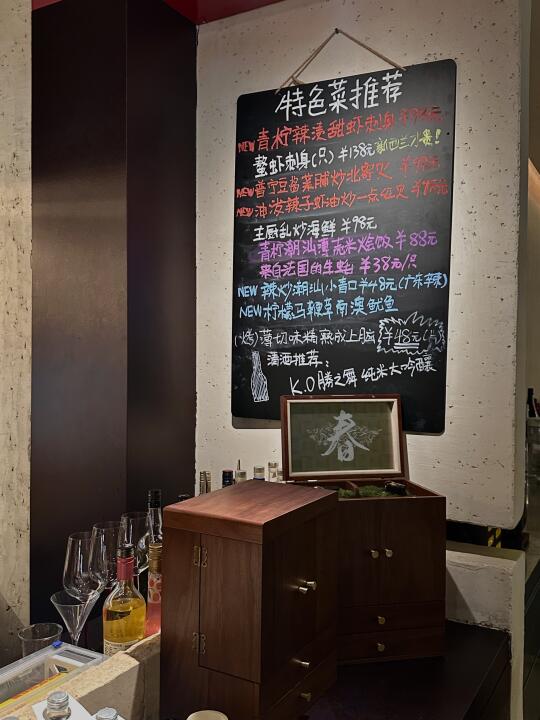 特色菜推荐
NEW 青柠辣渍甜虾刺身
螯虾刺身(只) ¥138元 新西兰小贵!
NEW 普宁豆酱菜脯炒北寄
NEW 油泼辣子虾油炒一点红
主厨乱炒海鲜 ¥98元
青柠潮汕薄壳米烩饭 ¥88元
来自法国的生蚝 ¥38元/只
NEW 辣炒潮汕小青口¥48元(广东辣)
NEW 柠檬马鞭草南澳鱿鱼
(烤)薄切味精熟成上脑 ¥48元
清酒推荐:
K.O 勝之舞 纯米大吟釀
春